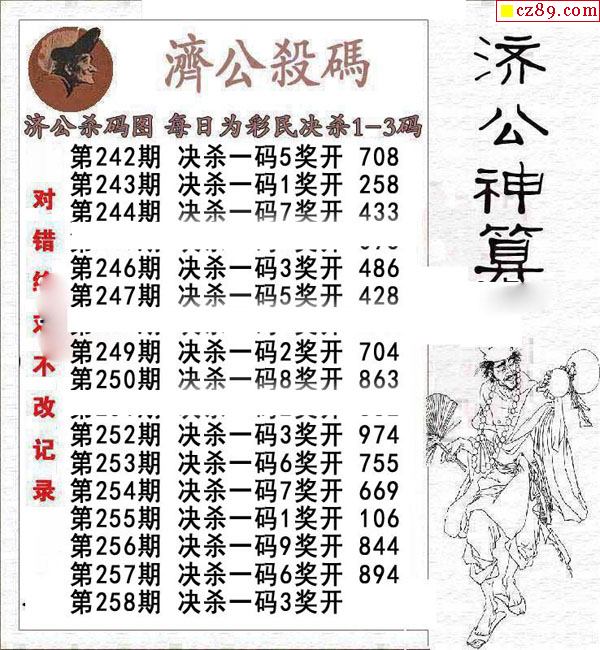 cz89.com
濟公殺碼
济公杀码图 每日为彩民决杀1-3码
第242期 决杀一码5奖开 708
第243期 决杀一码1奖开 258
第244期 决杀一码7奖开 433
第246期 决杀一码3奖开 486
第247期 决杀一码5奖开 428
第249期 决杀一码2奖开 704
第250期 决杀一码8奖开 863
第252期 决杀一码3奖开 974
第253期 决杀一码6奖开 755
第254期 决杀一码7奖开 669
第255期 决杀一码1奖开 106
第256期 决杀一码9奖开 844
第257期 决杀一码6奖开 894
第258期 决杀一码3奖开
对错
不改记录
济公神算